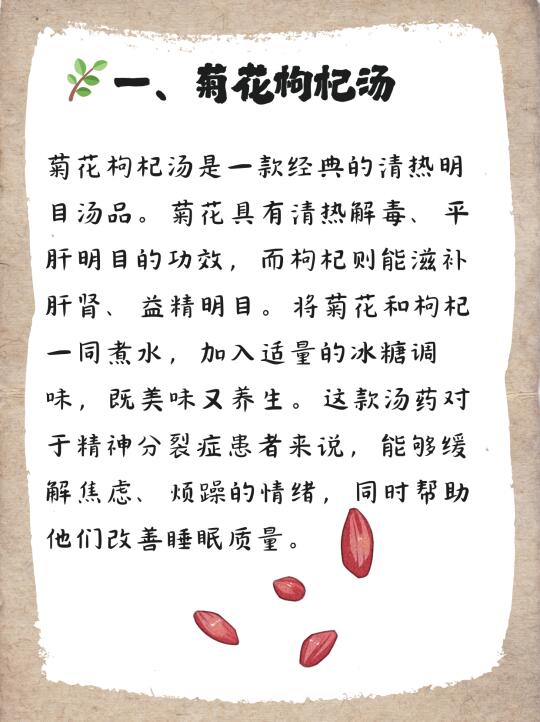 一、菊花枸杞汤
菊花枸杞汤是一款经典的清热明
目汤品。菊花具有清热解毒、平
肝明目的功效，而枸杞则能滋补
肝肾、益精明目。将菊花和枸杞
一同煮水，加入适量的冰糖调
味，既美味又养生。这款汤药对
于精神分裂症患者来说，能够缓
解焦虑、烦躁的情绪，同时帮助
他们改善睡眠质量。